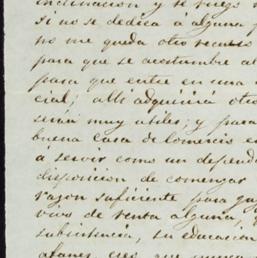 inclinacion y le ruego
Si no se dedica á alguna p
no me queda otro recurso
para que se acostumbre al
para que entre en una
cial; allí adquirirá otro
serán muy utiles; y para
buena casa de comercio e
á servir como un depend
disposicion de comenzar
razon suficiente para ju
vivo de venta alguna,
subsistencia, su educacion
afanes creo que nunca